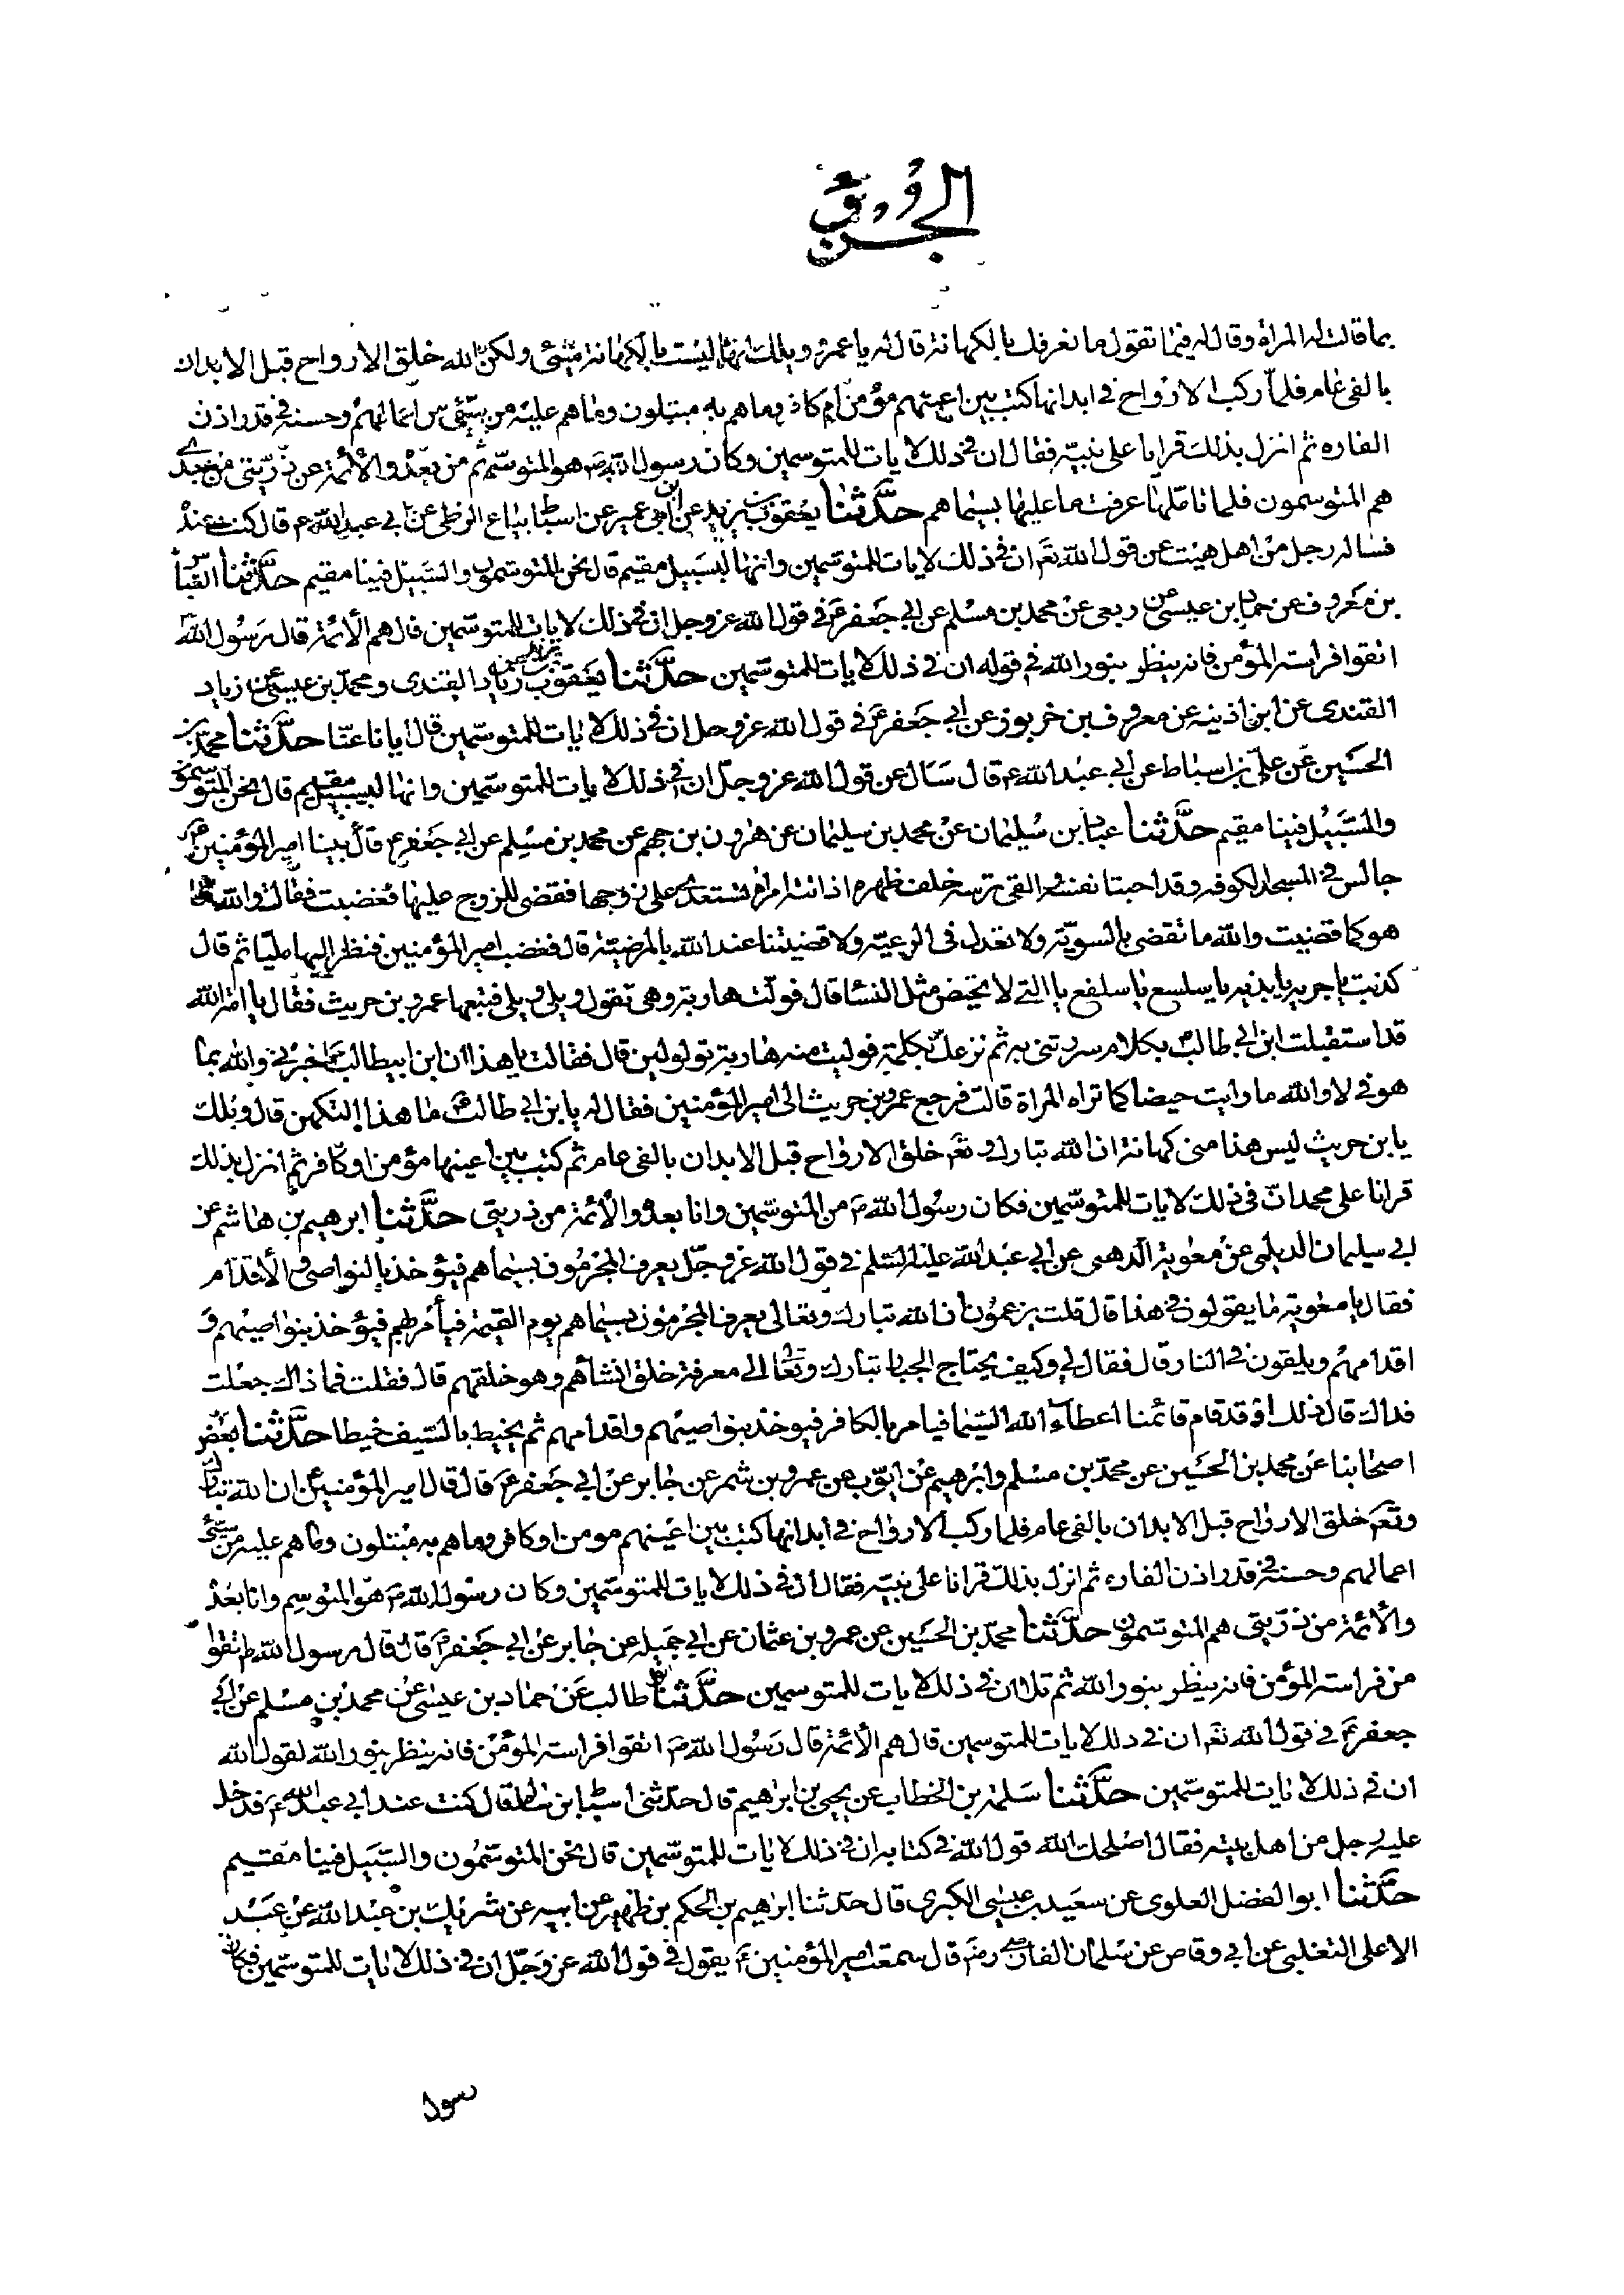 الجزو
بما قالت له المراة وقال له فيما تقول ما نعرفك بالكهانة قال له يا عمرو ويلك انها ليست بالكهانة بشئ ولكن الله خلق الارواح قبل الابدان
بالفى عام فلما ركب الارواح فى ابدانها كتب بين اعينهم مؤمن ام كافر وما هم به مبتلون وما هم عليه من سيئ من اعمالهم وحسنه فى قدر اذن
الفاره ثم انزل بذلك قرانا على نبيه فقال ان فى ذلك لايات للمتوسمين وكان رسول الله ص هو المتوسم ثم من بعده والائمة من ذريتى من بعدى
هم المتوسمون فلما تاملتها عرفت ما عليها بسيماهم حدثنا يعقوب بن يزيد عن ابن ابى عمير عن اسباط بياع الزطى عن ابى عبد الله ع قال كنت عنده
فساله رجل من اهل هيت عن قول الله تع ان فى ذلك لايات للمتوسمين وانها لبسبيل مقيم قال نحن المتوسمون والسبيل فينا مقيم حدثنا العباس
بن معروف عن حماد بن عيسى عن ربعى عن محمد بن مسلم عن ابى جعفر ع فى قول الله عز وجل ان فى ذلك لايات للمتوسمين قال هم الائمة قال رسول الله
اتقوا فراسة المؤمن فانه ينظر بنور الله فى قوله ان فى ذلك لايات للمتوسمين حدثنا يعقوب بن يزيد عن زياد القندى ومحمد بن عيسى عن زياد
القندى عن ابن اذينه عن معروف بن خربوز عن ابى جعفر ع فى قول الله عز وجل ان فى ذلك لايات للمتوسمين قال ايانا عنا حدثنا محمد بن
الحسين عن على بن اسباط عن ابى عبد الله ع قال سال عن قول الله عز وجل ان فى ذلك لايات للمتوسمين وانها لبسبيل مقيم قال نحن المتوسمون
والسبيل فينا مقيم حدثنا عباد بن سليمان عن محمد بن سليمان عن هرون بن جهم عن محمد بن مسلم عن ابى جعفر ع قال بينا امير المؤمنين ع
جالس فى المسجد الكوفه وقد احتبا بسيفه والقى ترسه خلف ظهره اذ اتته امراة تستعدى على زوجها فقضى للزوج عليها فغضبت فقالت والله ما
هو كما قضيت والله ما تقضى بالسوية ولا تعدل فى الرعية ولا قضيتنا عند الله بالمرضية قال فغضب امير المؤمنين فنظر اليها مليا ثم قال
كذبت يا جريه يا بذيه يا سلسع يا سلفع يا التى لا تحيض مثل النسا قال فولت هاربة وهى تقول ويلى ويلى فتبعها عمرو بن حريث فقال يا امة الله
قد استقبلت ابن ابى طالب بكلام سررتنى به ثم نزعك بكلمة فوليت منه هاربة تولولين قال فقالت يا هذا ان ابن ابيطالب ع اخبرنى والله بما
هو فى لا والله ما رايت حيضا كما تراه المراة قالت فرجع عمرو بن حريث الى امير المؤمنين فقال له يا بن ابى طالب ع ما هذا التكهن قال ويلك
يا بن حريث ليس هذا منى كهانة ان الله تبارك وتع خلق الارواح قبل الابدان بالفى عام ثم كتب بين اعينها مؤمن او كافر ثم انزل بذلك
قرانا على محمد ان فى ذلك لايات للمتوسمين فكان رسول الله ص من المتوسمين وانا بعده والائمة من ذريتى حدثنا ابرهيم بن هاشم عن
ابى سليمان الديلمى عن معوية الدهنى عن ابى عبد الله عليه السلم فى قول الله عز وجل يعرف المجرمون بسيماهم فيؤخذ بالنواصى والاقدام
فقال يا معوية ما يقولون فى هذا قال قلت يزعمون ان الله تبارك وتعالى يعرف المجرمون بسيماهم يوم القيمة فيأمر بهم فيؤخذ بنواصيهم و
اقدامهم ويلقون فى النار قال فقال لى وكيف يحتاج الجبار تبارك وتعالى الى معرفة خلق انشاهم وهو خلقهم قال فقلت فما ذاك جعلت
فداك قال ذلك لو قد قام قائمنا اعطاه الله السيما فيامر بالكافر فيوخذ بنواصيهم واقدامهم ثم يخبط بالسيف خبطا حدثنا بعض
اصحابنا عن محمد بن الحسين عن محمد بن مسلم وابرهيم عن ايوب عن عمرو بن شمر عن جابر عن ابى جعفر ع قال قال امير المؤمنين ع ان الله تبارك
وتع خلق الارواح قبل الابدان بالفى عام فلما ركب الارواح فى ابدانها كتب بين اعينهم مومن او كافر وما هم به مبتلون وما هم عليه من سيئ
اعمالهم وحسنة فى قدر اذن الفاره ثم انزل بذلك قرانا على نبيه فقال ان فى ذلك لايات للمتوسمين وكان رسول الله ص هو المتوسم وانا بعده
والائمة من ذريتى هم المتوسمون حدثنا محمد بن الحسين عن عمرو بن عثمان عن ابى جميله عن جابر عن ابى جعفر ع قال قال رسول الله ص اتقوا
من فراسة المؤمن فانه ينظر بنور الله ثم تلا ان فى ذلك لايات للمتوسمين حدثنا ابو طالب عن حماد بن عيسى عن محمد بن مسلم عن ابى
جعفر ع فى قول الله تع ان فى ذلك لايات للمتوسمين قال هم الائمة قال رسول الله ص اتقوا فراسة المؤمن فانه ينظر بنور الله لقول الله
ان فى ذلك لايات للمتوسمين حدثنا سلمة بن الخطاب عن يحيى بن ابرهيم قال حدثنى اسباط قال كنت عند ابى عبد الله ع فدخل
عليه رجل من اهل بيته فقال اصلحك الله قول الله فى كتابه ان فى ذلك لايات للمتوسمين قال نحن المتوسمون والسبيل فينا مقيم
حدثنا ابو الفضل العلوى عن سعيد بن عيسى الكبرى قال حدثنا ابرهيم بن الحكم بن ظهير عن ابيه عن شريك بن عبد الله عن عبد
الاعلى التغلبى عن ابى وقاص عن سلمان الفارسى رضه قال سمعت امير المؤمنين ع يقول فى قول الله عز وجل ان فى ذلك لايات للمتوسمين فكان
رسول